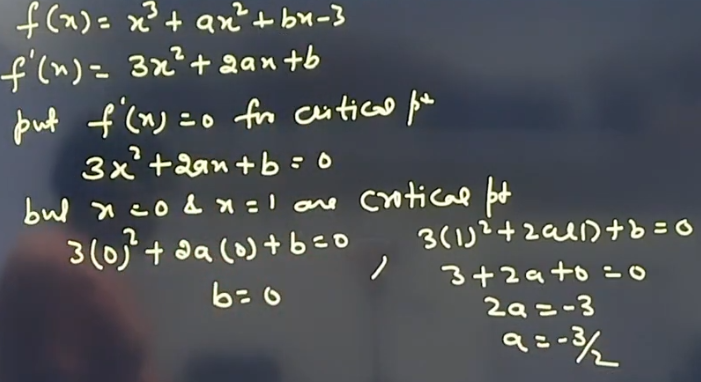 f(x) = x³ + ax² + bx - 3
f'(x) = 3x² + 2ax + b
put f'(x) = 0 for critical pt
3x² + 2ax + b = 0
but x = 0 & x = 1 are critical pt
3(0)² + 2a(0) + b = 0 , 3(1)² + 2a(1) + b = 0
b = 0
3 + 2a + 0 = 0
2a = -3
a = -3/2